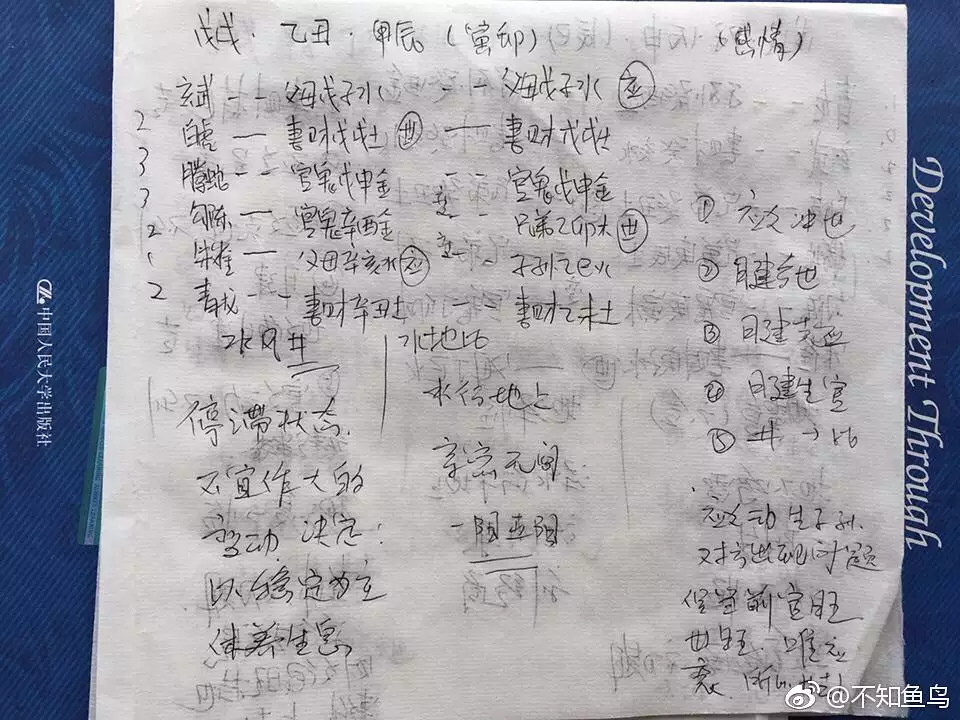 戊戌·乙丑·甲辰(寅卯) (感情)
玄武 -- 父母戊子水 -- 父母戊子水 应
2 白虎 — 妻财戊戌土 世 — 妻财戊戌土
3 腾蛇 -- 官鬼戊申金 -- 官鬼戊申金
3 勾陈 — 官鬼辛酉金 -- 兄弟乙卯木 世
2 朱雀 — 父母辛亥水 应 -- 子孙乙巳火
2 青龙 -- 妻财辛丑土 妻财乙未土
水风井
水地比
停滞状态
不宜作大的
变动 决定:
以稳定为主
休养生息
水行地上
亲密无间
一阳五阴
① 应爻冲世
② 日建合世
③ 日建克应
④ 日建生官
⑤ 井→比
应爻动生子孙.
对方出现问题
世旺. 唯应
中国人民大学出版社
Development Through
@不知鱼鸟